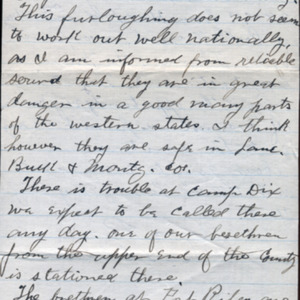 This furloughing does not seem
to work out well nationally,
as I am informed from reliable
sound that they are in great
danger in a good many parts
of the western states. I think
however they are safe in Lanc.
Buck & Montg. Co.
There is trouble at Camp Dix
we expect to be called there
any day. one of our brethren
from the upper end of the County
is stationed there
The brethren at